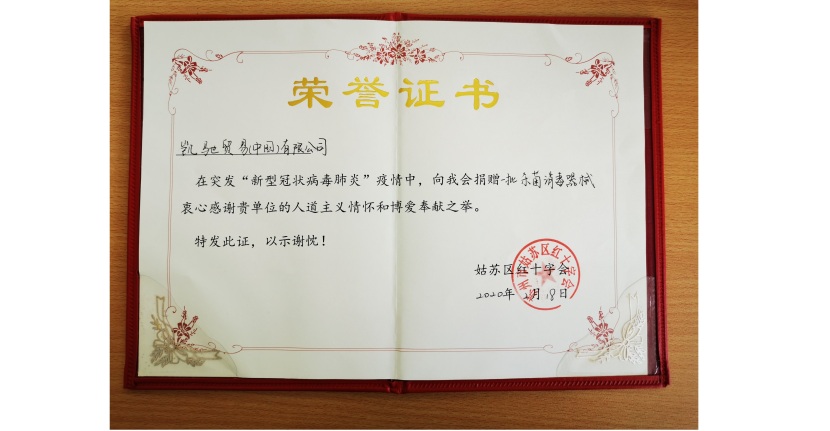 荣誉证书
凯驰贸易(中国)有限公司
在突发“新型冠状病毒肺炎”疫情中，向我会捐赠一批杀菌消毒器械
衷心感谢贵单位的人道主义情怀和博爱奉献之举。
特发此证，以示谢忱！
苏州市姑苏区红十字会
姑苏区红十字会
2020年2月18日